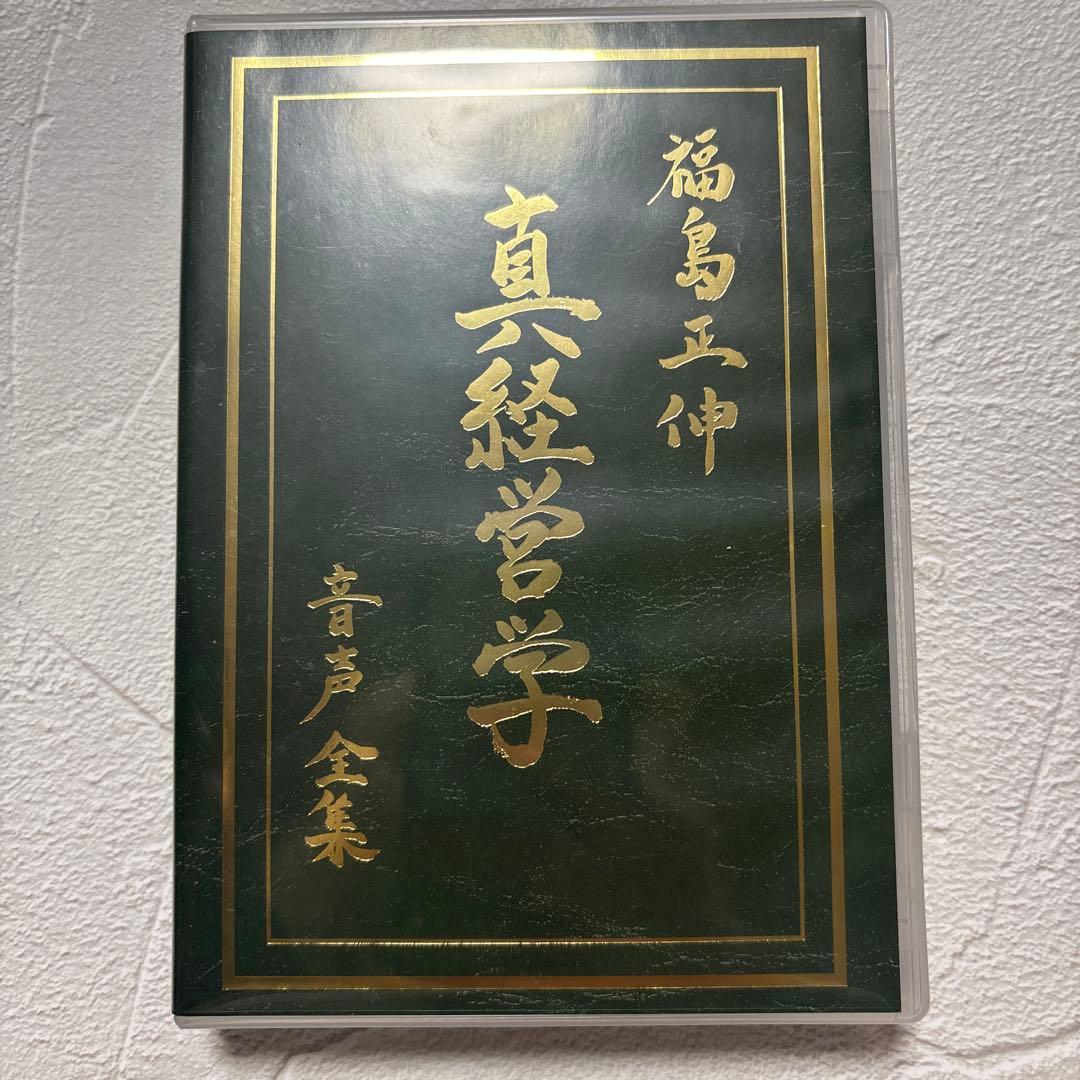 福島正伸
真経営学
音声全集